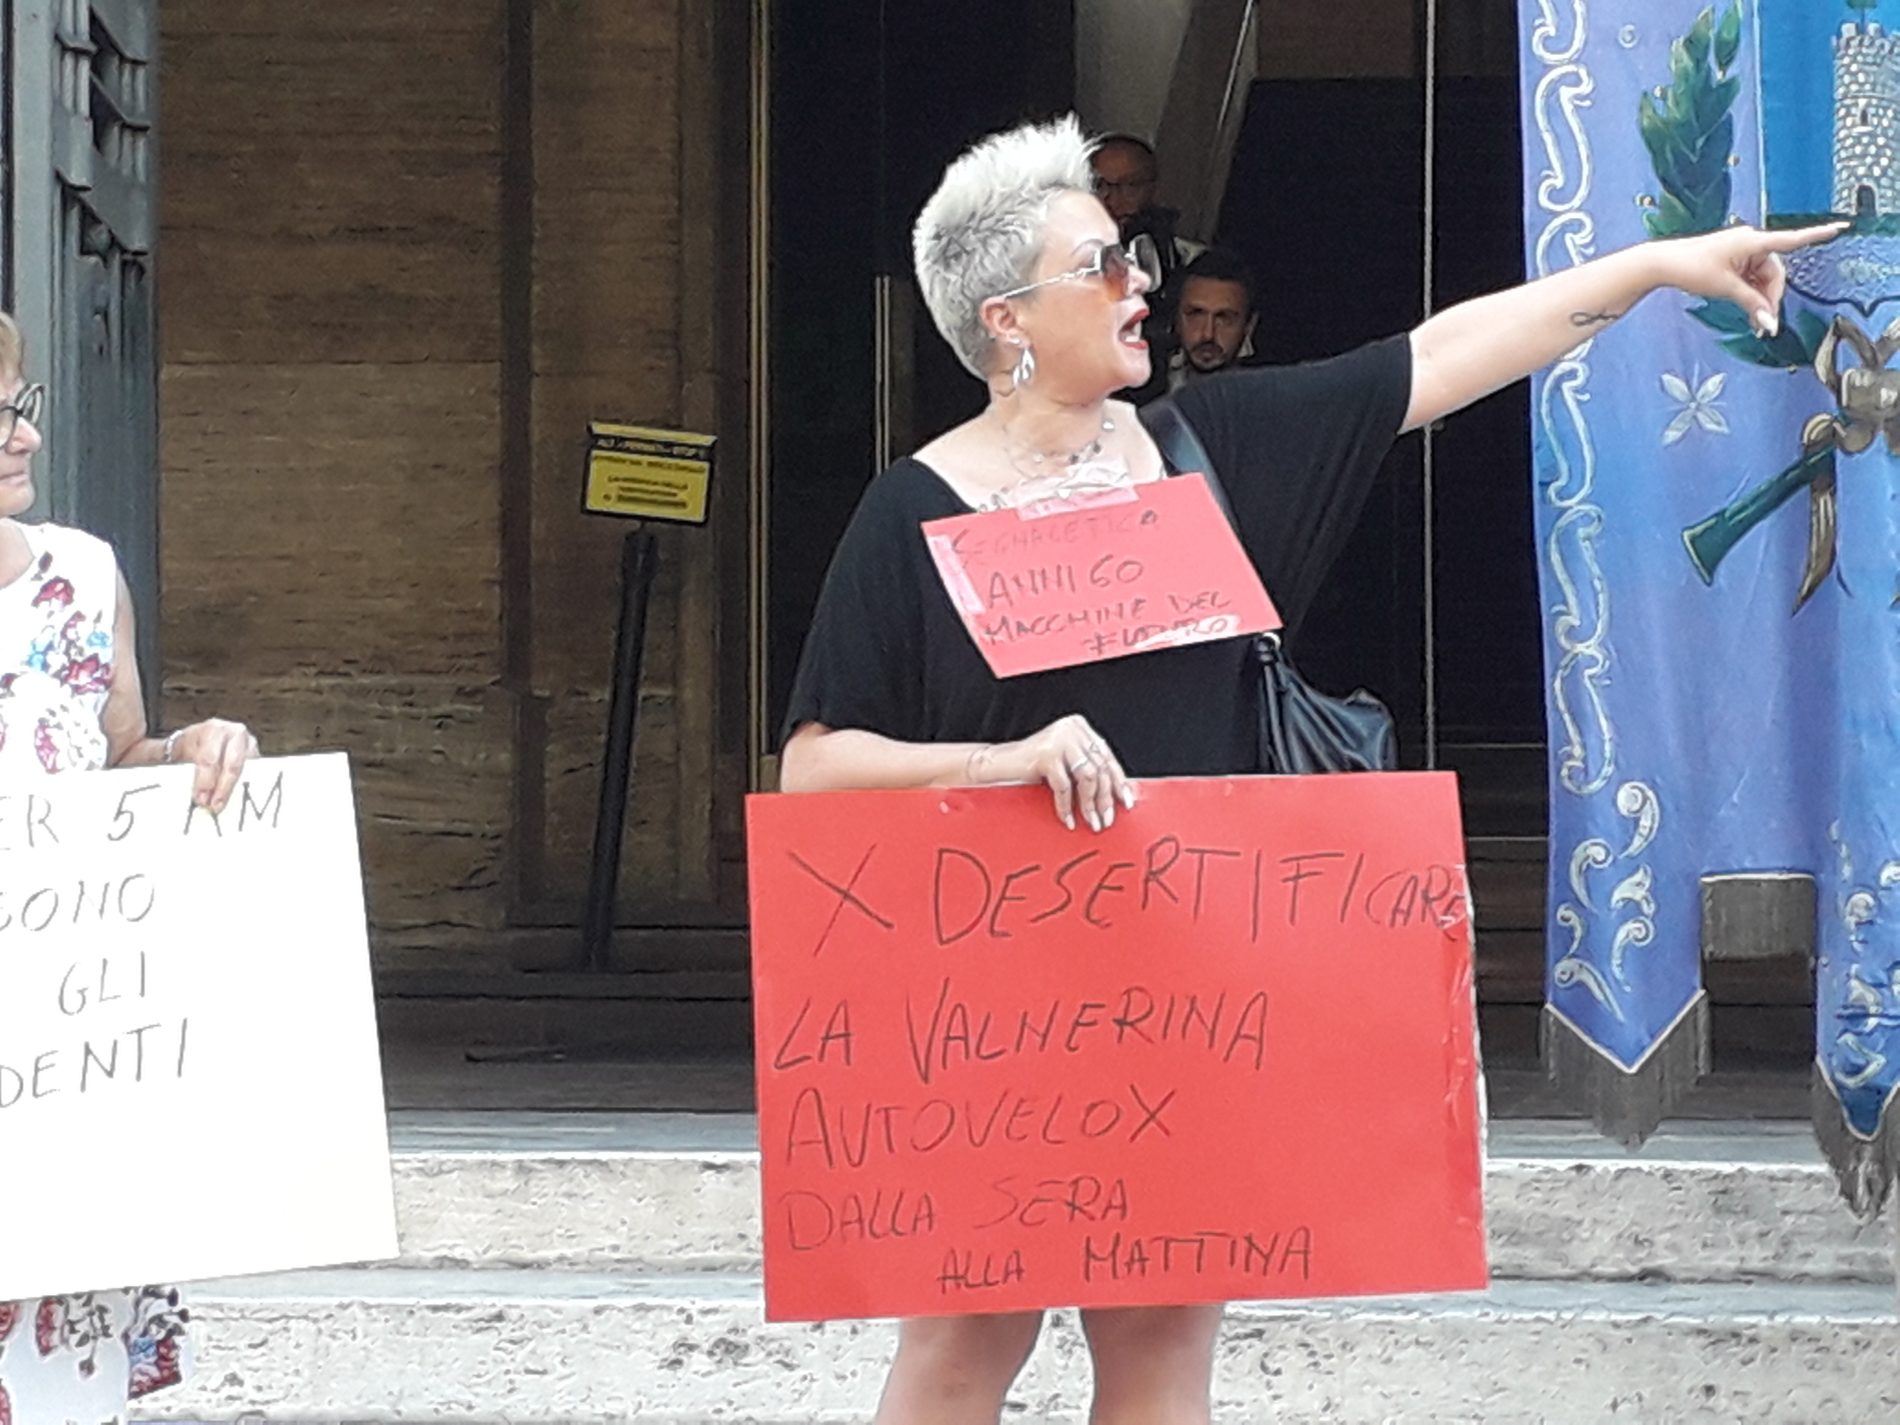 ER 5 KM
SONO
GLI
DENTI
SEGNALETICA
ANNI 60
MACCHINE DEL
X DESERTIFICARE
LA VALNERINA
AUTOVELOX
DALLA SERA
ALLA MATTINA